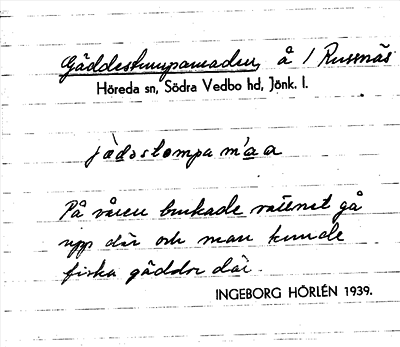 Gäddestumpamaden, å 1 Rusnäs
Höreda sn, Södra Vedbo hd, Jönk. l.
jädəstompa maa
På våren brukade vattnet gå
upp där och man kunde
fiska gäddor där.
INGEBORG HÖRLÉN 1939.